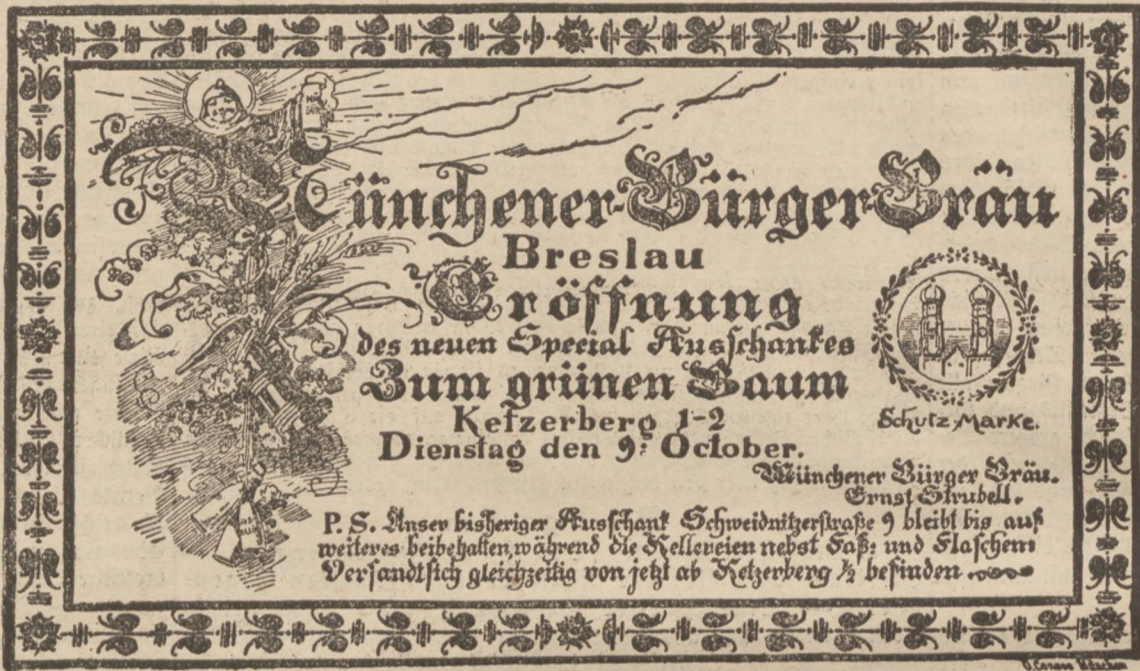 Münchener-Bürger-Bräu
Breslau
Eröffnung
des neuen Special Ausschankes
Zum grünen Baum
Ketzerberg 1-2
Dienstag den 9. October.
Schutz-Marke.
Münchener Bürger Bräu.
Ernst Strubell.
P.S. Unser bisheriger Ausschank Schweidnitzerstraße 9 bleibt bis auf
weiteres beibehalten, während die Kellereien nebst Faß- und Flaschen-
Versandt sich gleichzeitig von jetzt ab Ketzerberg ½ befinden